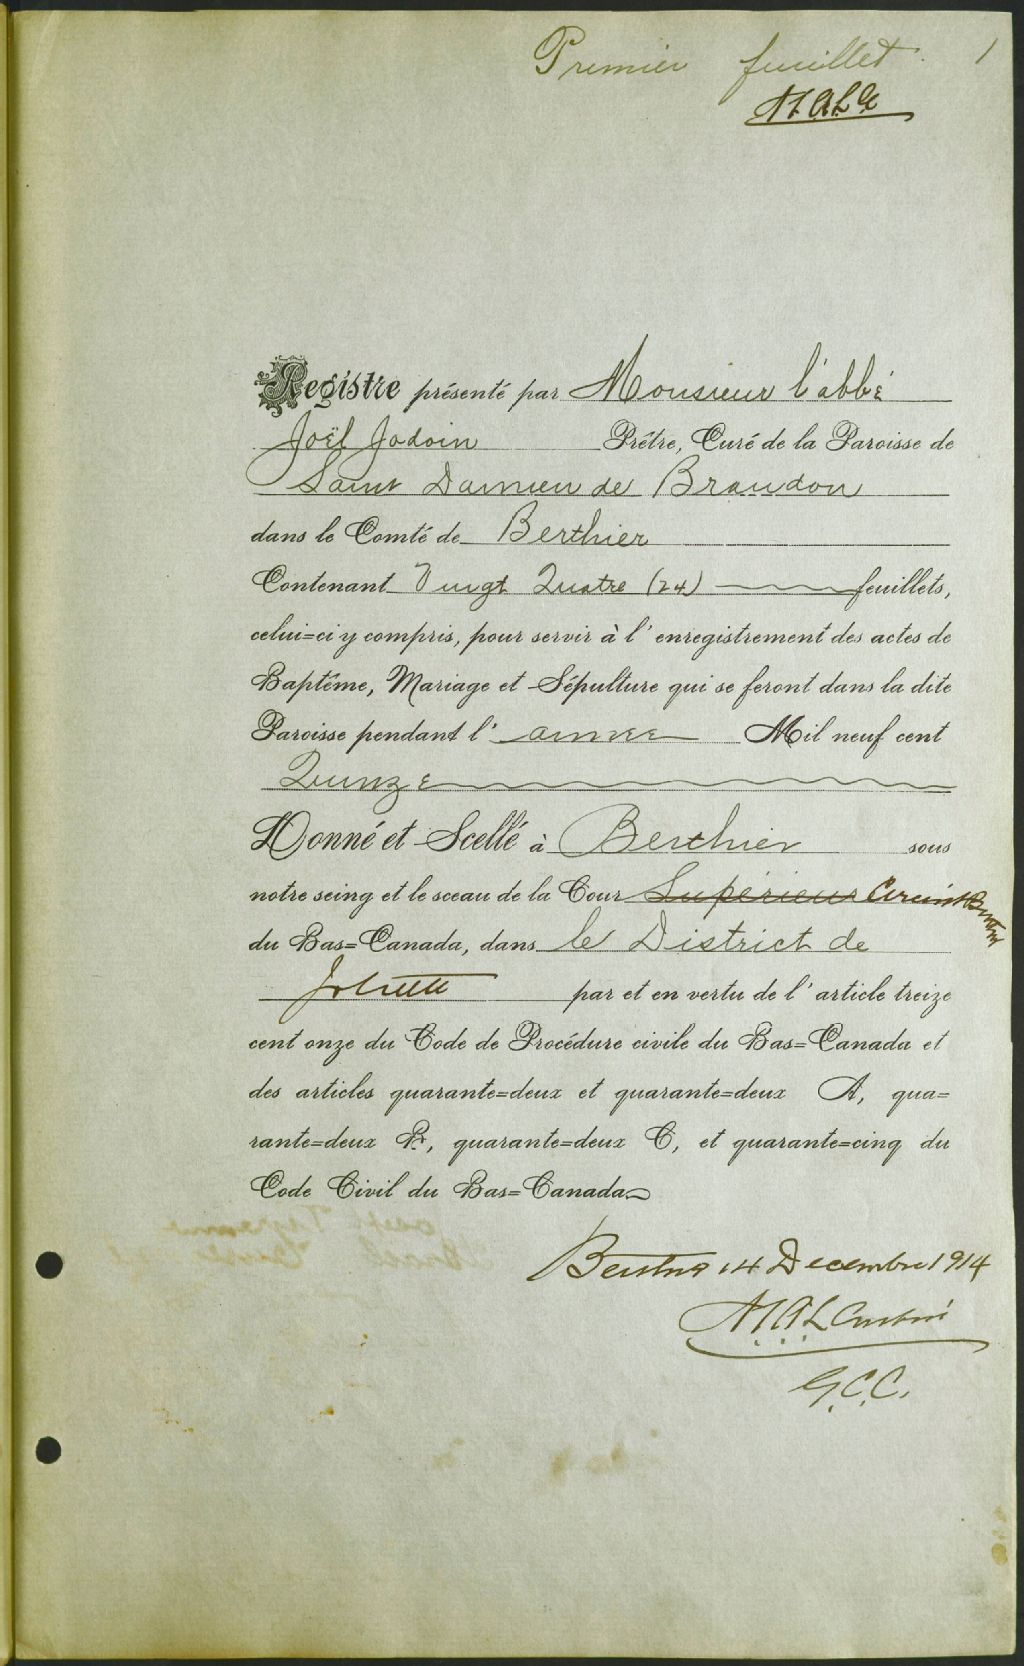 Premier feuillet. 1
Registre présenté par Monsieur l'abbé
Joël Jodoin Prêtre, Curé de la Paroisse de
Saint Damien de Brandon
dans le Comté de Berthier
Contenant Vingt Quatre (24) feuillets,
celui=ci y compris, pour servir à l'enregistrement des actes de
Baptême, Mariage et Sépulture qui se feront dans la dite
Paroisse pendant l'année Mil neuf cent
Quinze
Donné et Scellé à Berthier sous
notre seing et le sceau de la Cour Supérieur Circuit
du Bas=Canada, dans le District de
Joliette par et en vertu de l'article treize
cent onze du Code de Procédure civile du Bas=Canada et
des articles quarante=deux et quarante=deux A, qua=
rante=deux B, quarante=deux C, et quarante=cinq du
Code Civil du Bas=Canada
Berthier 14 Decembre 1914
G.C.C.